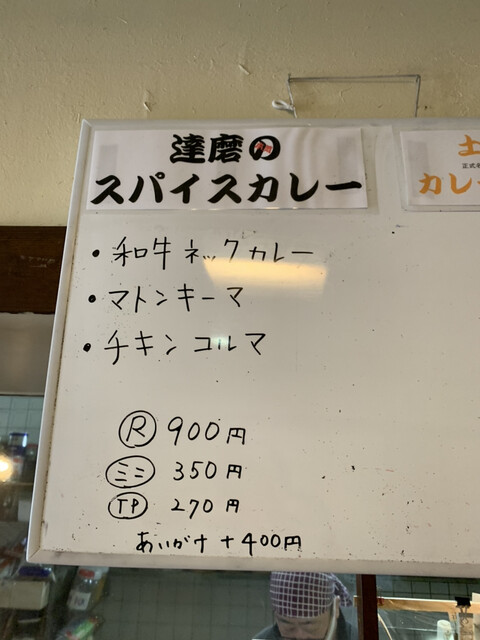 達磨の
スパイスカレー
土
正式名
カレー
・和牛ネックカレー
・マトンキーマ
・チキンコルマ
Ⓡ 900円
ミニ 350円
TP 270円
あいがけ +400円